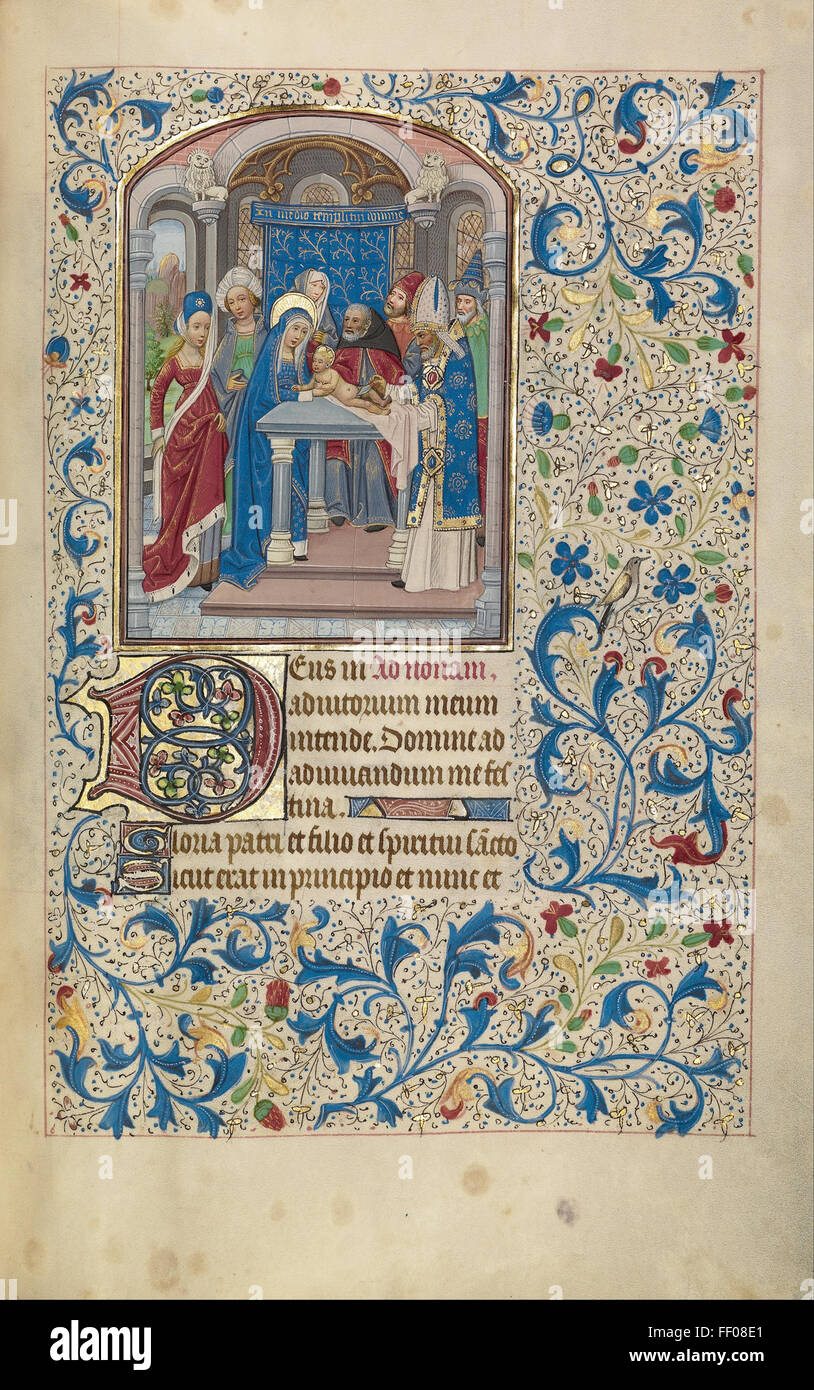 In medio templi tui
Eus in Ad nonam.
adiutorium meum
intende. Domine ad
adiuuandum me fes
tina.
Gloria patri et filio et spiritui sancto
Sicut erat in principio et nunc et
alamy
alamy
Image ID: FF08E1
www.alamy.com